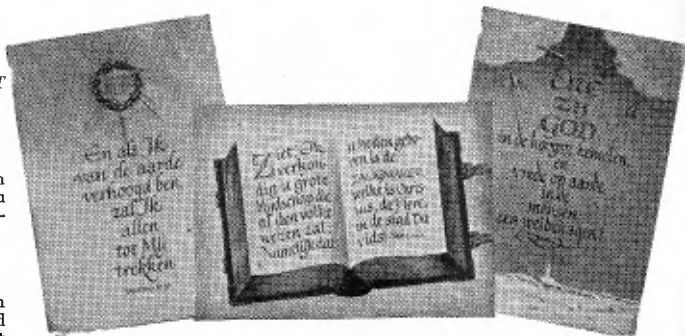 En als Ik
van de aarde
verhoogd ben,
zal Ik
allen
tot Mij
trekken
Ziet, Ik
verkon-
dig u grote
blijdschap, die
al den volke
wezen zal,
namelijk dat
u heden gebo-
ren is de
ZALIGMAKER
welke is Chris-
tus, de Here,
in de stad Da-
vids!
ERE
ZIJ
GOD
in de hoogste hemelen,
en
vrede op aarde
in de
mensen
een welbehagen!